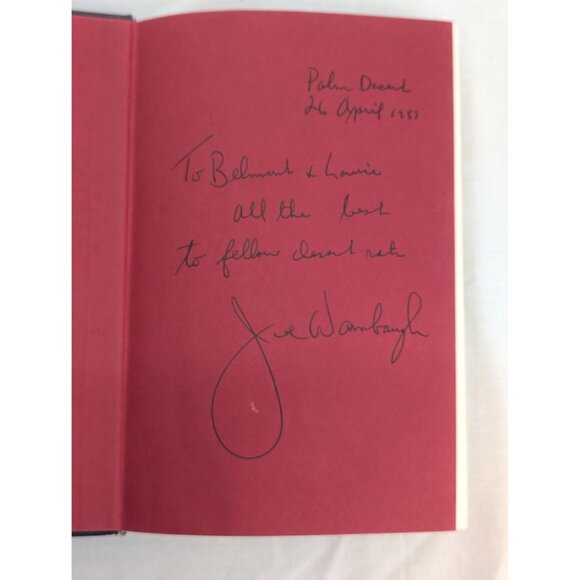 Palm Desert
26 April 1987
To Belmont & Louise
all the best
to fellow desert rats
Joe Wambaugh